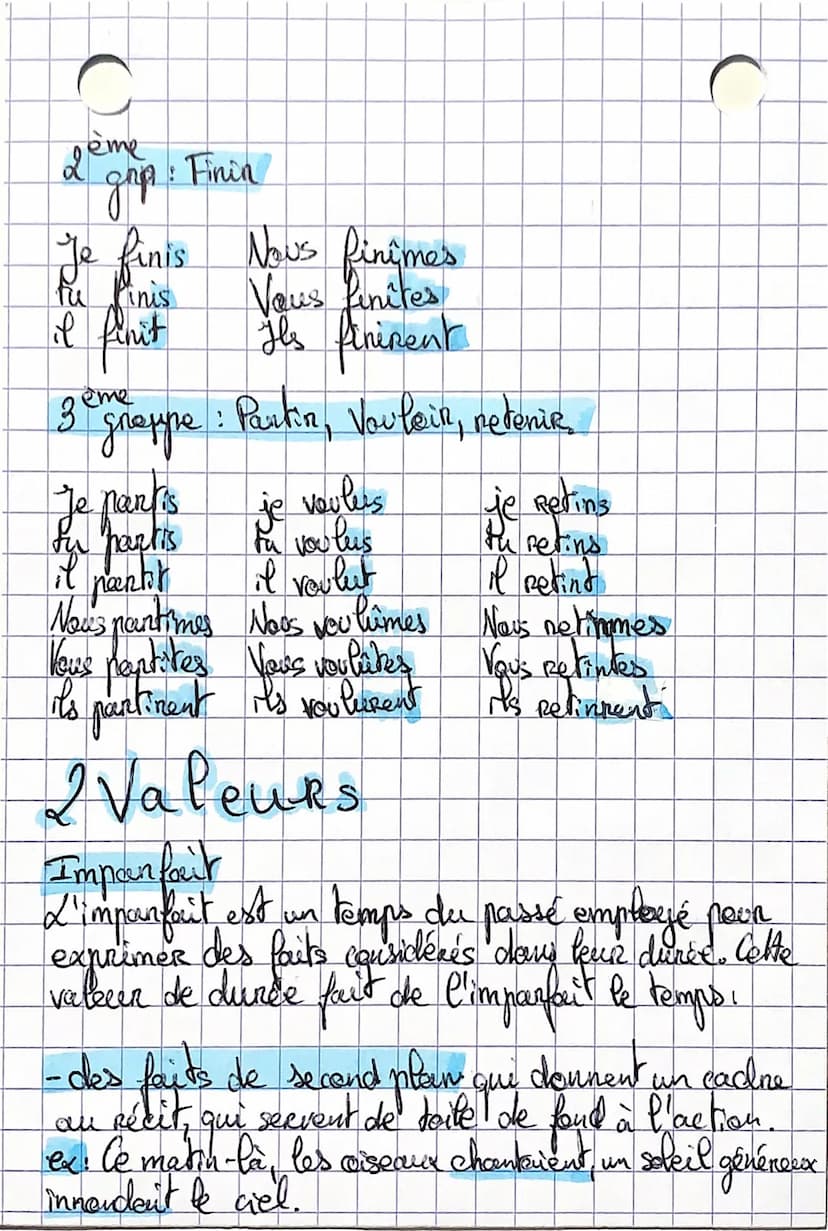 2ème grp : Finir
Je finis Nous finîmes
tu finis Vous finîtes
il finit Ils finirent
3ème groppe : Partir, Vouloir, retenir.
Je partis je voulus je retins
tu partis tu voulus tu retins
il partit il voulut il retint
Nous partîmes Nous voulûmes Nous retînmes
Vous partîtes Vous voulûtes Vous retîntes
ils partirent ils voulurent ils retinrent
2 Valeurs
Imparfait
L'imparfait est un temps du passé employé pour
exprimer des faits considérés dans leur durée. Cette
valeur de durée fait de l'imparfait le temps :
- des faits de second plan qui donnent un cadre
au récit, qui servent de toile de fond à l'action.
ex : Ce matin-là, les oiseaux chantaient, un soleil généreux
innondait le ciel.